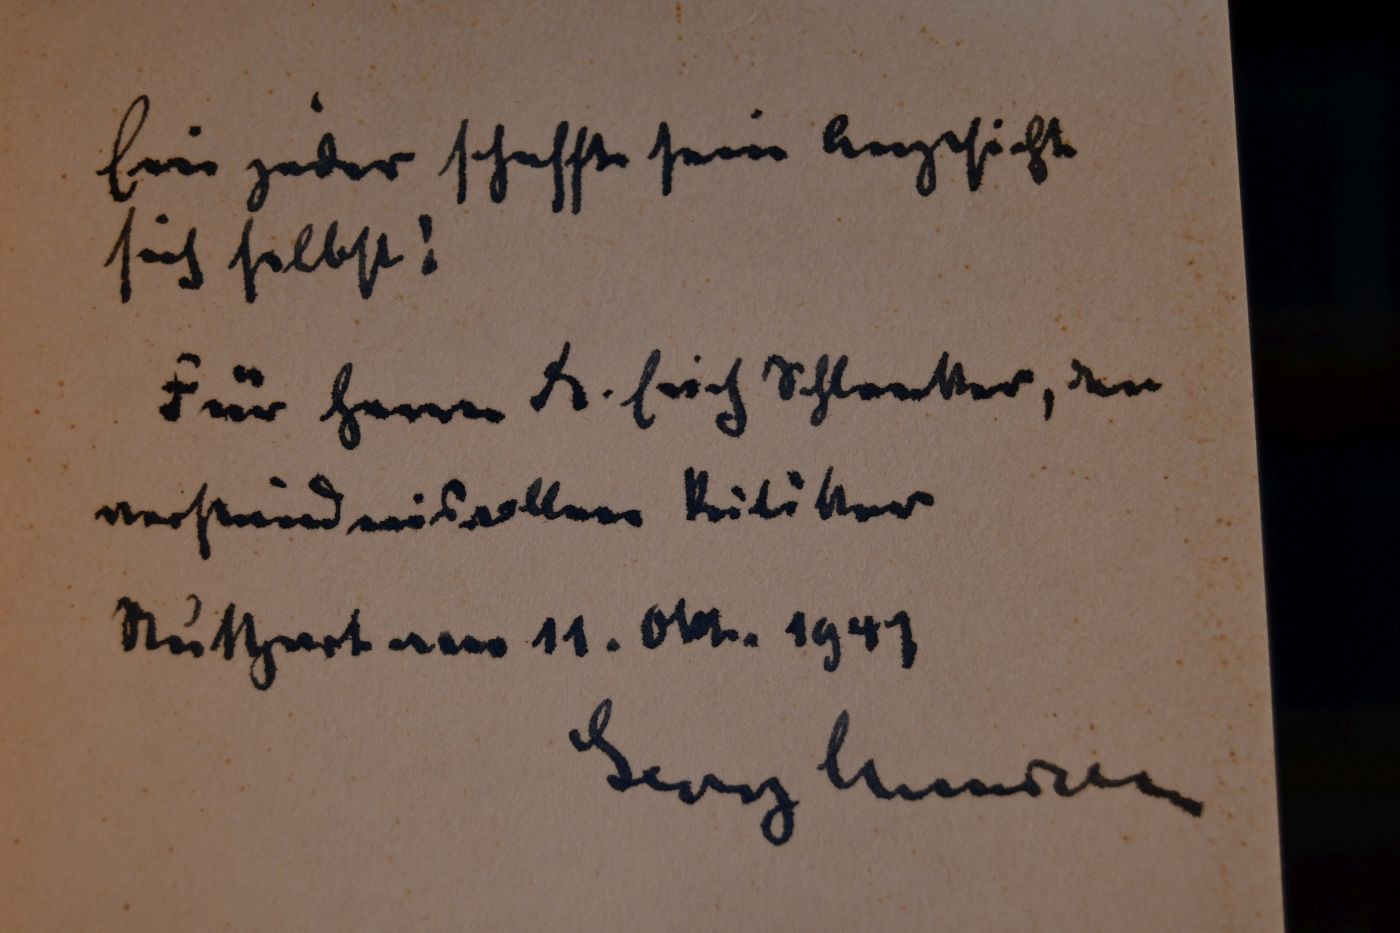 Ein jeder schafft sein Angesicht
sich selbst!
Für Herrn Dr. Erich Schlenker, den
verständnisvollen Kritiker
Stuttgart am 11. Okt. 1947
Georg